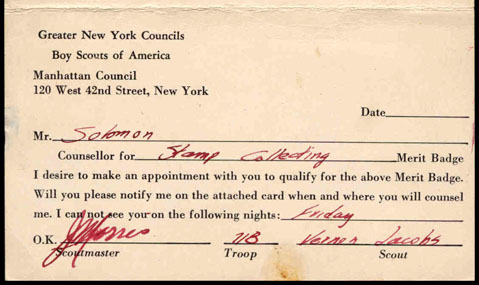 Greater New York Councils
Boy Scouts of America
Manhattan Council
120 West 42nd Street, New York
Date
Mr. Solomon
Counsellor for Stamp Collecting Merit Badge
I desire to make an appointment with you to qualify for the above Merit Badge.
Will you please notify me on the attached card when and where you will counsel
me. I can not see you on the following nights: Friday
O.K. 718 Vernon Jacobs
Scoutmaster Troop Scout